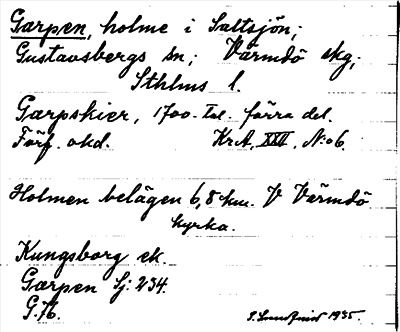 Garpen, holme i Saltsjön;
Gustavsbergs sn; Värmdö skg;
Sthlms l.
Garpskier, 1700-tal. förra del.
Förf. okd. Kr.A. XXII, N:o 6.
Holmen belägen 6,8 km. V Värmdö
kyrka.
Kungsborg ek.
Garpen Sj: 234.
G. 76.
1935.